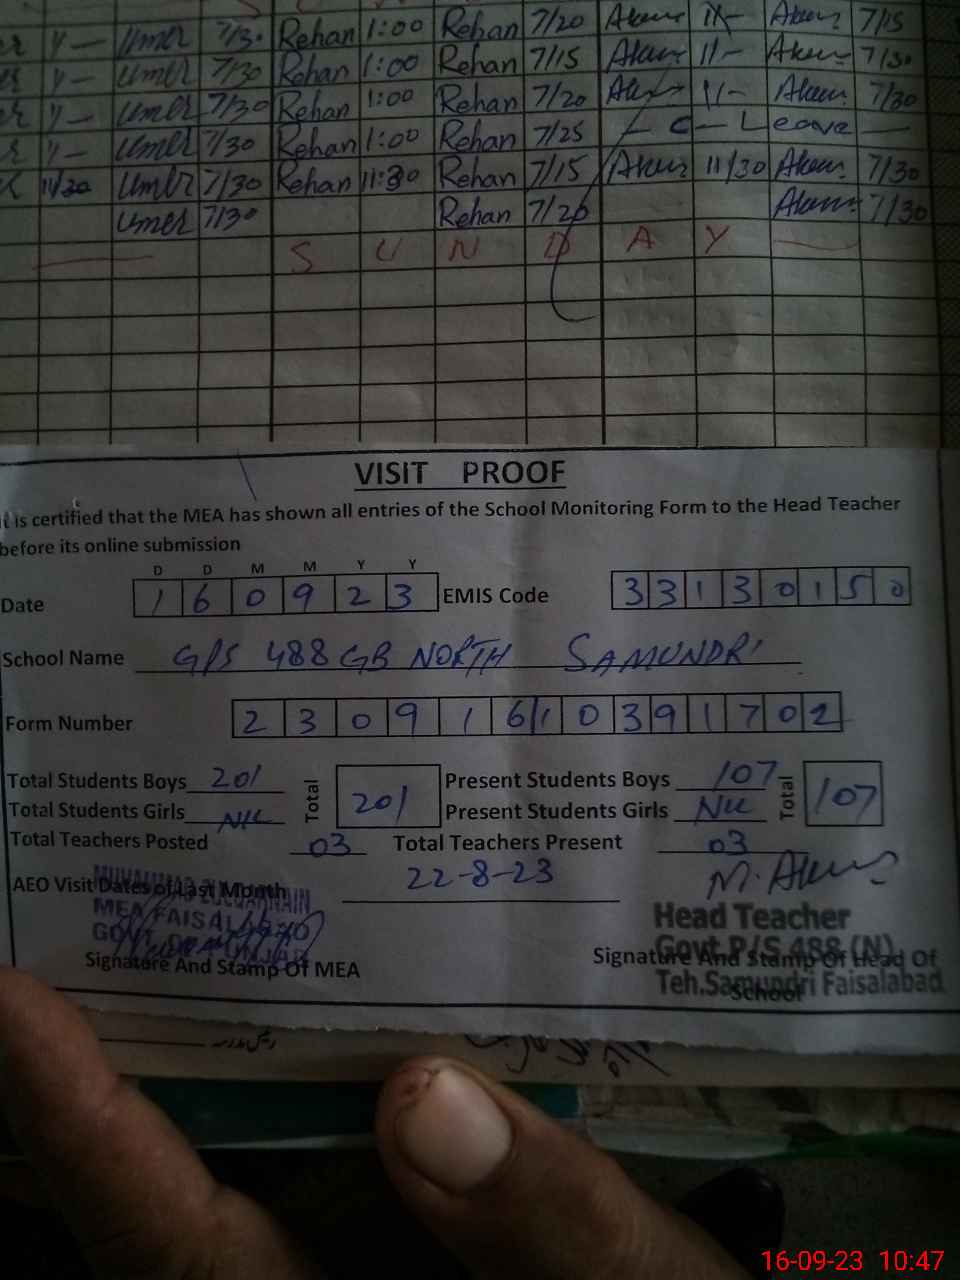 Umer 7/30 Rehan 1:00 Rehan 7/20 Akram 11- Akram 7/15
Umer 7/30 Rehan 1:00 Rehan 7/15 Akram 11- Akram 7/30
Umer 7/30 Rehan 1:00 Rehan 7/20 Akram 11- Akram 7/30
Umer 7/30 Rehan 1:00 Rehan 7/25 C - Leave
11/30 Umer 7/30 Rehan 11:30 Rehan 7/15 Akram 11/30 Akram 7/30
Umer 7/30 Rehan 7/20 Akram 7/30
S U N D A Y
VISIT PROOF
It is certified that the MEA has shown all entries of the School Monitoring Form to the Head Teacher
before its online submission
D D M M Y Y
Date 1 6 0 9 2 3 EMIS Code 3 3 1 3 0 1 5 0
School Name GPS 488 GB NORTH SAMUNDRI
Form Number 2 3 0 9 1 6 1 0 3 9 1 7 0 2
Total Students Boys 201 Total 201 Present Students Boys 107 Total 107
Total Students Girls Nil Present Students Girls Nil
Total Teachers Posted 03 Total Teachers Present 03
AEO Visit Dates of Last Month 22-8-23 M. Akram
MUHAMMAD ZULQARNAIN
MEA FAISALABAD
GOVT. OF PUNJAB
Signature And Stamp Of MEA
Head Teacher
Govt.P/S 488 (N)
Teh.Samundri Faisalabad
Signature And Stamp Of Head Of
School
16-09-23 10:47